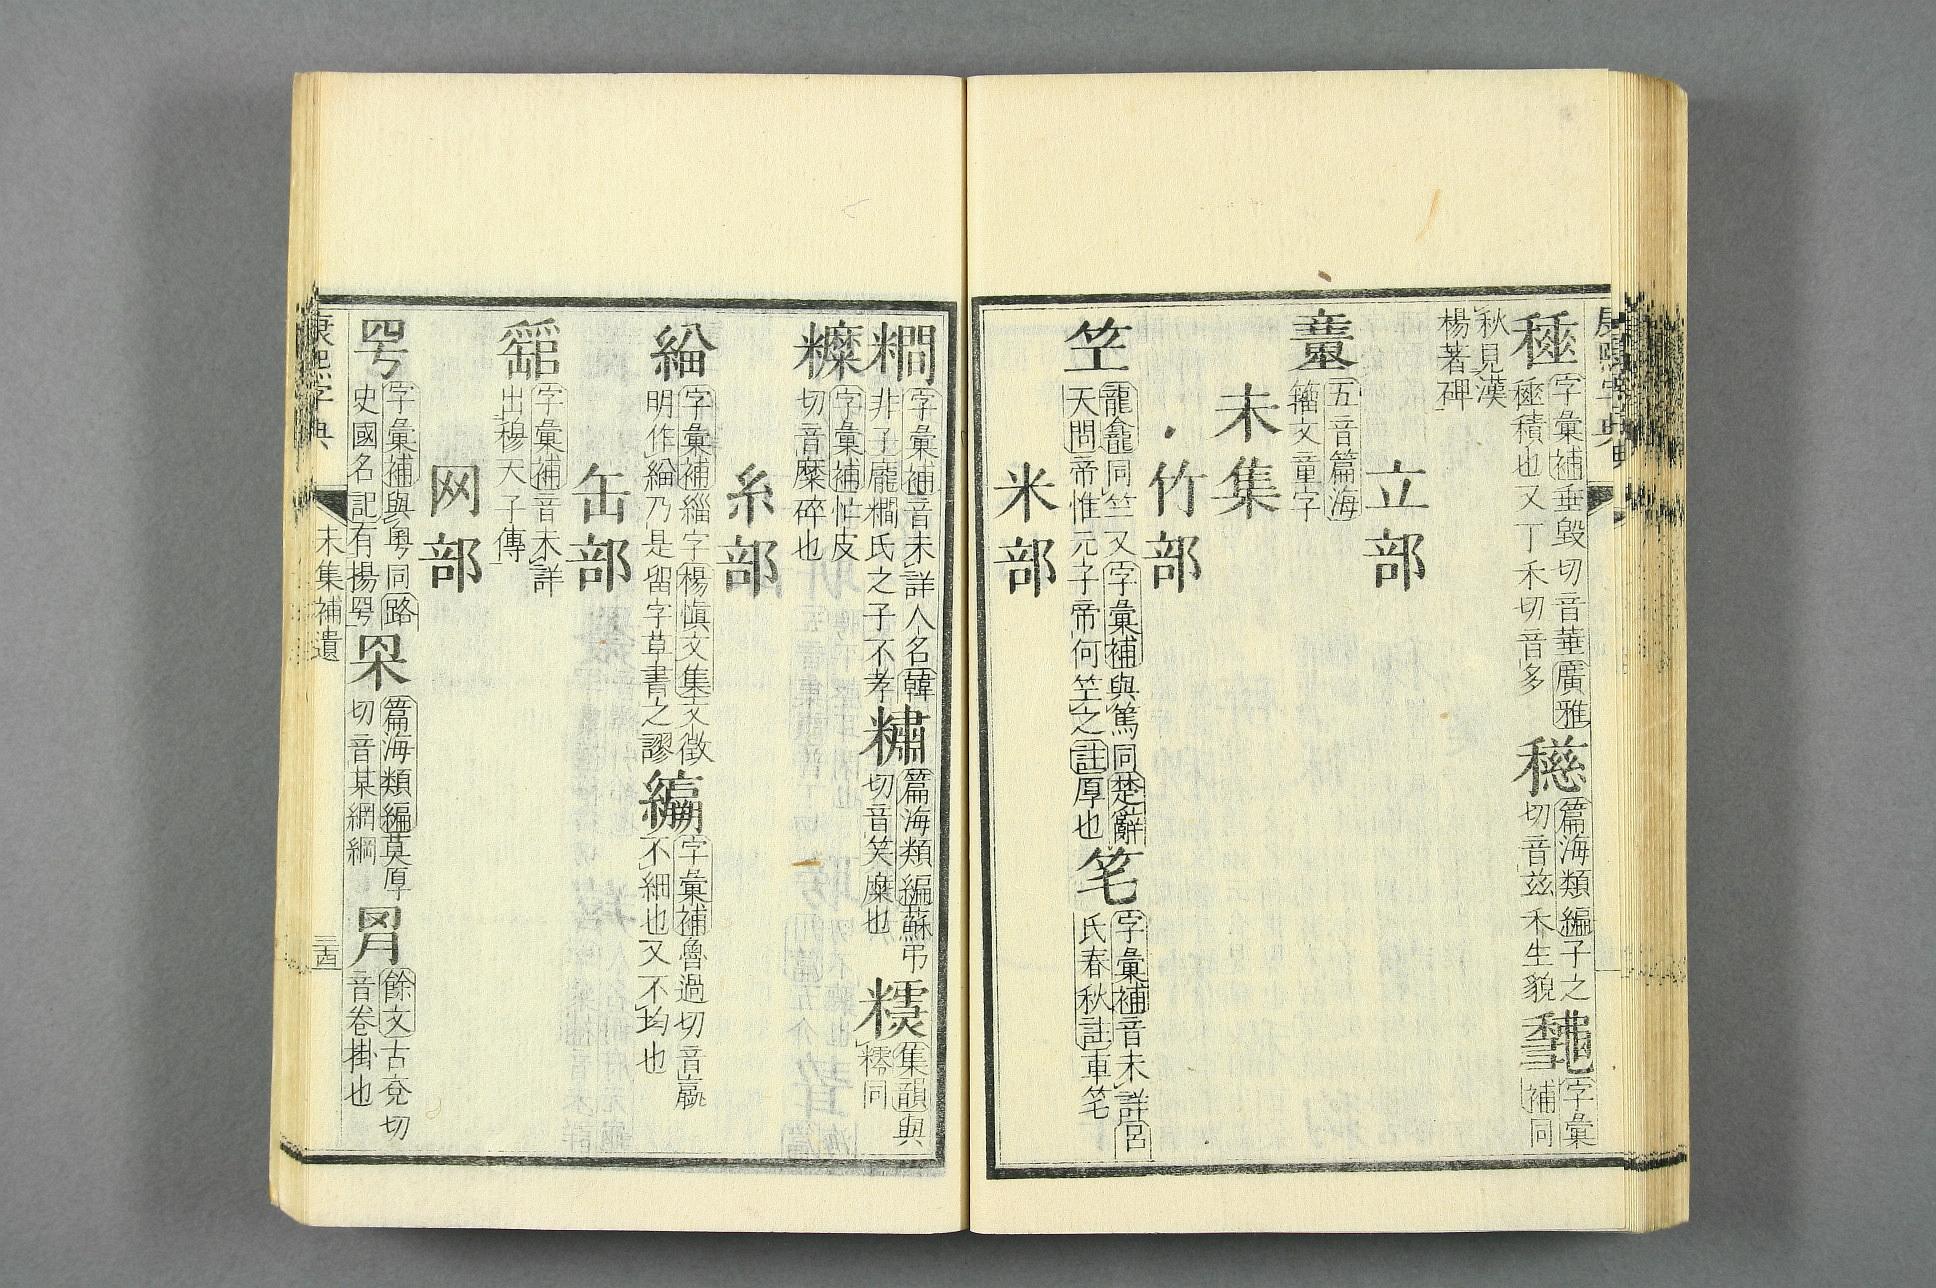 字彙補垂毀切音華廣雅
積也又丁禾切音多
篇海類編子之
切音兹禾生貌
字彙
補同
秋見漢
楊著碑
立部
五音篇海
籀文童字
未集
竹部
笁
龍龕同竺又字彙補與篤同楚辭
天問帝惟元子帝何笁之註厚也
笔
字彙補音未詳呂
氏春秋註車笔
米部
字彙補音未詳人名韓
非子龐糷氏之子不孝
篇海類編蘇弔
切音笑糜也
集韻與
同
字彙補忙皮
切音糜碎也
糸部
字彙補緇字楊愼文集文徵
明作緇乃是留字草書之謬
字彙補魯過切音臝
不細也又不均也
缶部
字彙補音未詳
出穆天子傳
网部
字彙補與粤同路
史國名記有揚
篇海類編莫厚
切音某網
餘文古兗切
音卷掛也
康熙字典
未集補遺